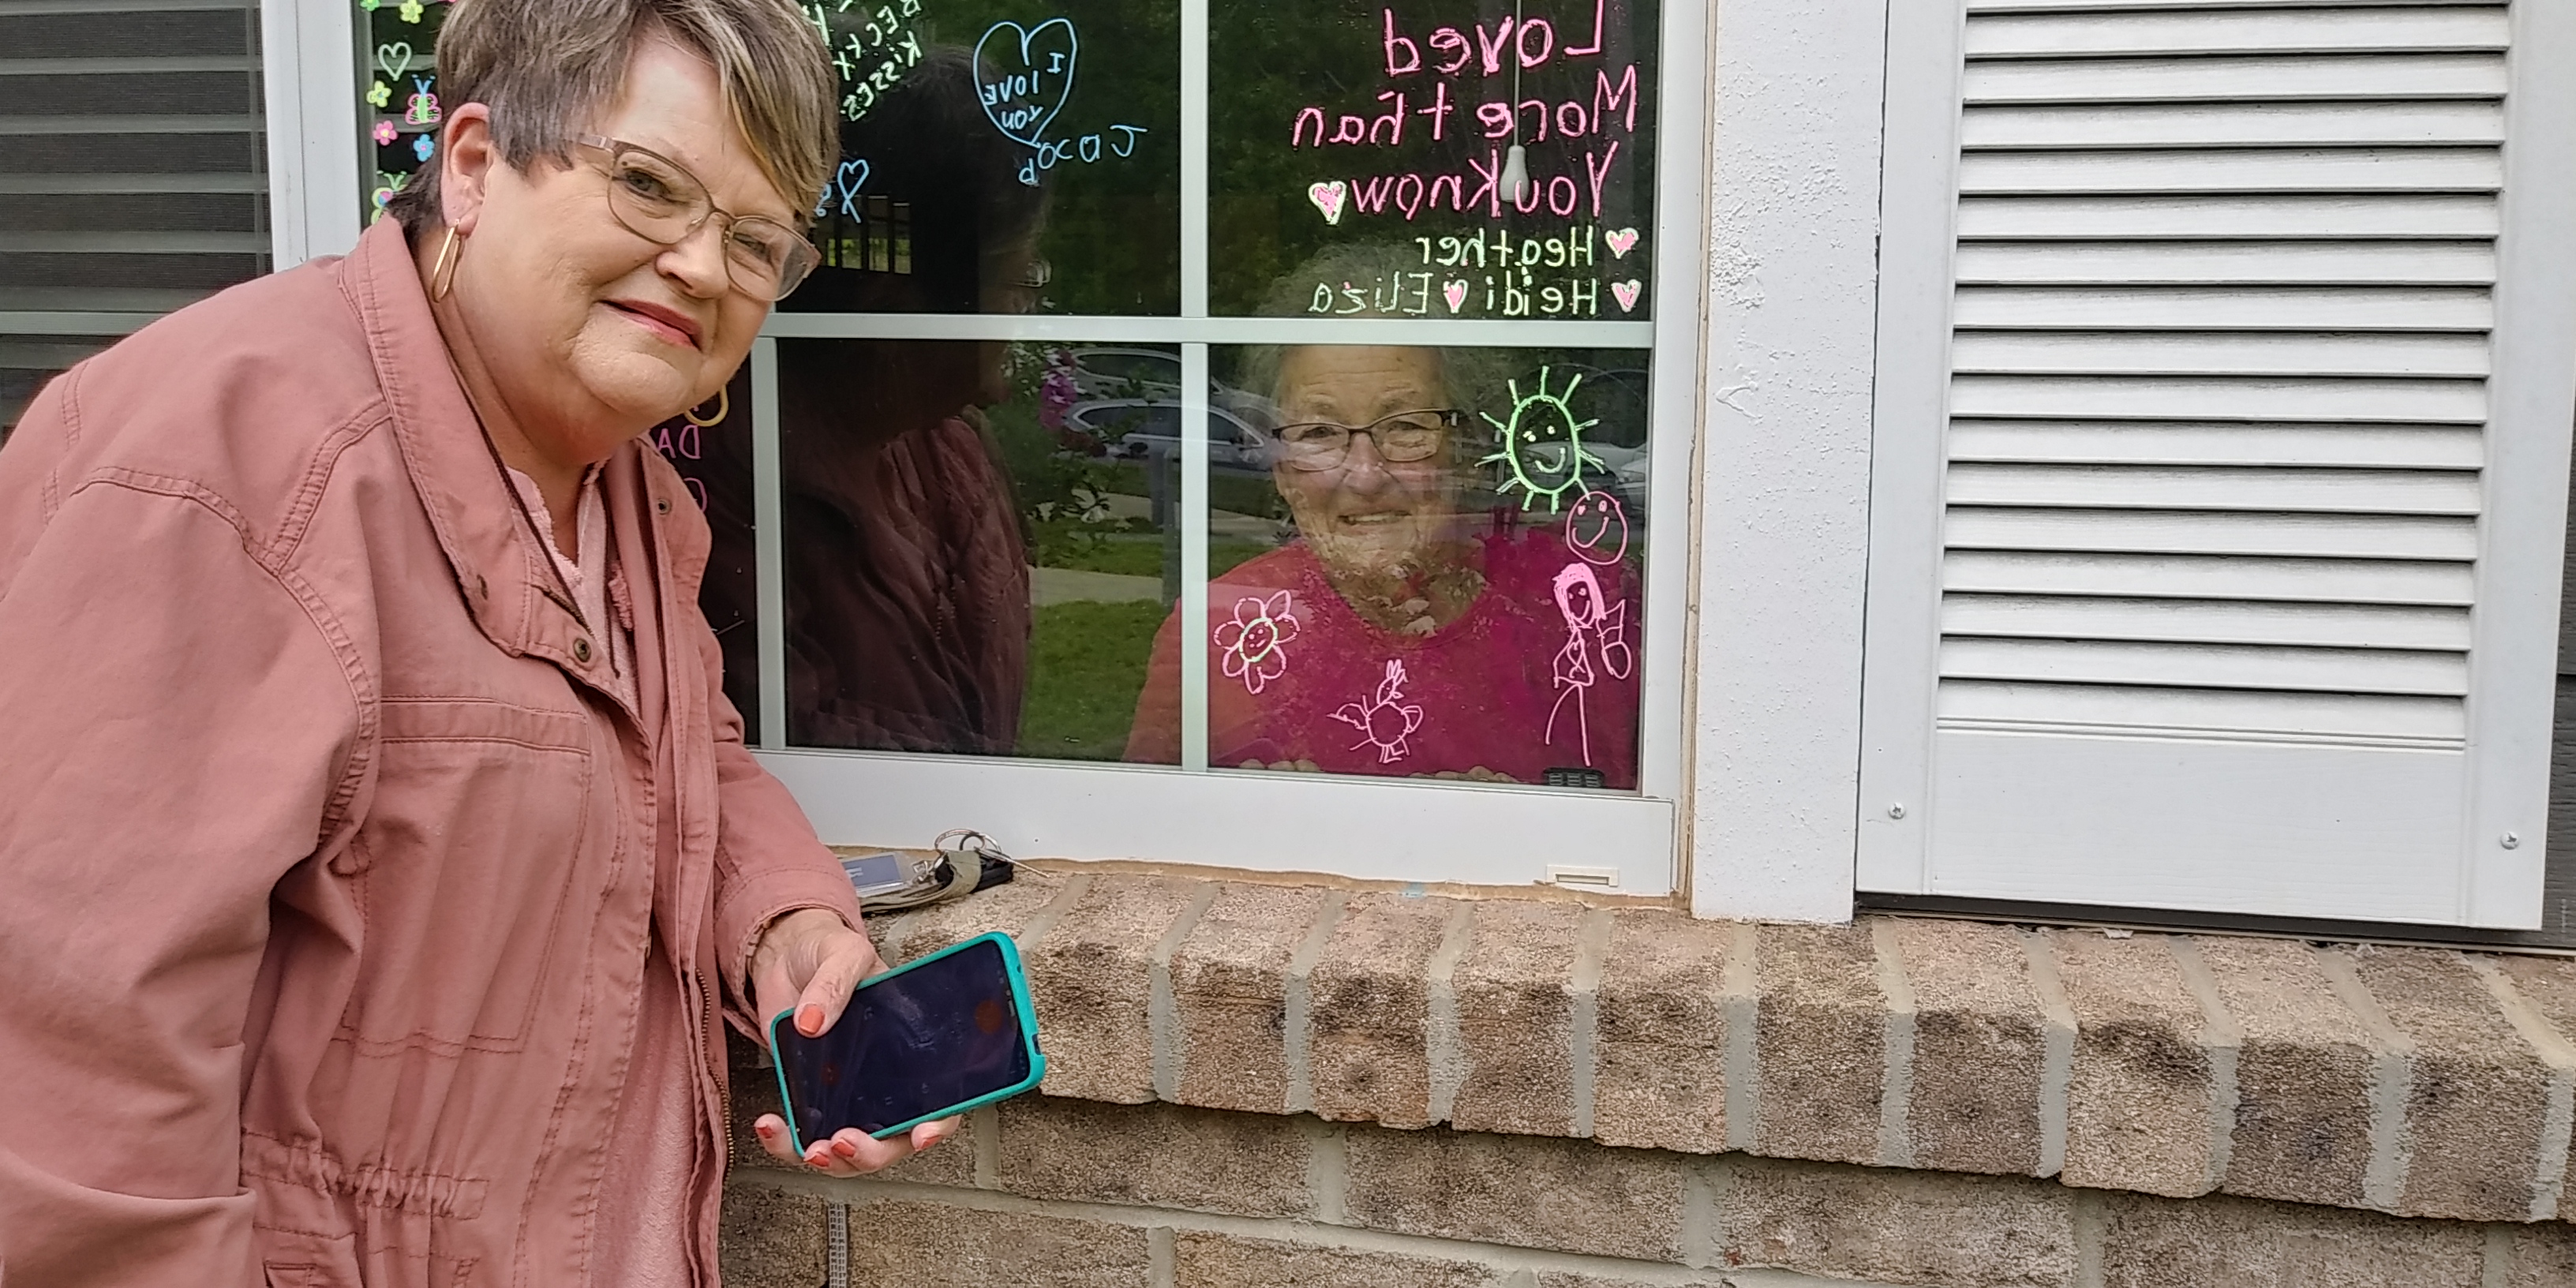 Loved
More than
You Know
Heather
Heidi Eliza
I
love
you
Jacob
Kisses